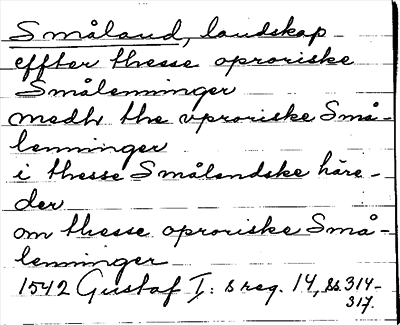 Småland, landskap
effter thesse oproriske
Smålenninger
medh the vproriske Små-
lenninger
i thesse Smålandske häre-
der
om thesse oproriske Små-
lenninger
1542 Gustaf I: s reg. 14, ss. 314-
317.